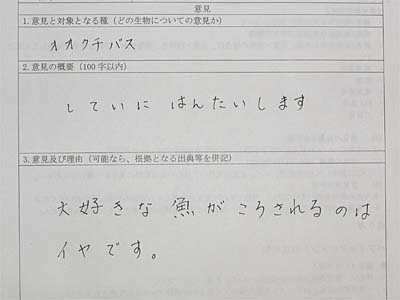 意見
1.意見と対象となる種（どの生物についての意見か）
オオクチバス
2.意見の概要（100字以内）
していに はんたいします
3.意見及び理由（可能なら、根拠となる出典等を併記）
大好きな魚がころされるのは
イヤです。